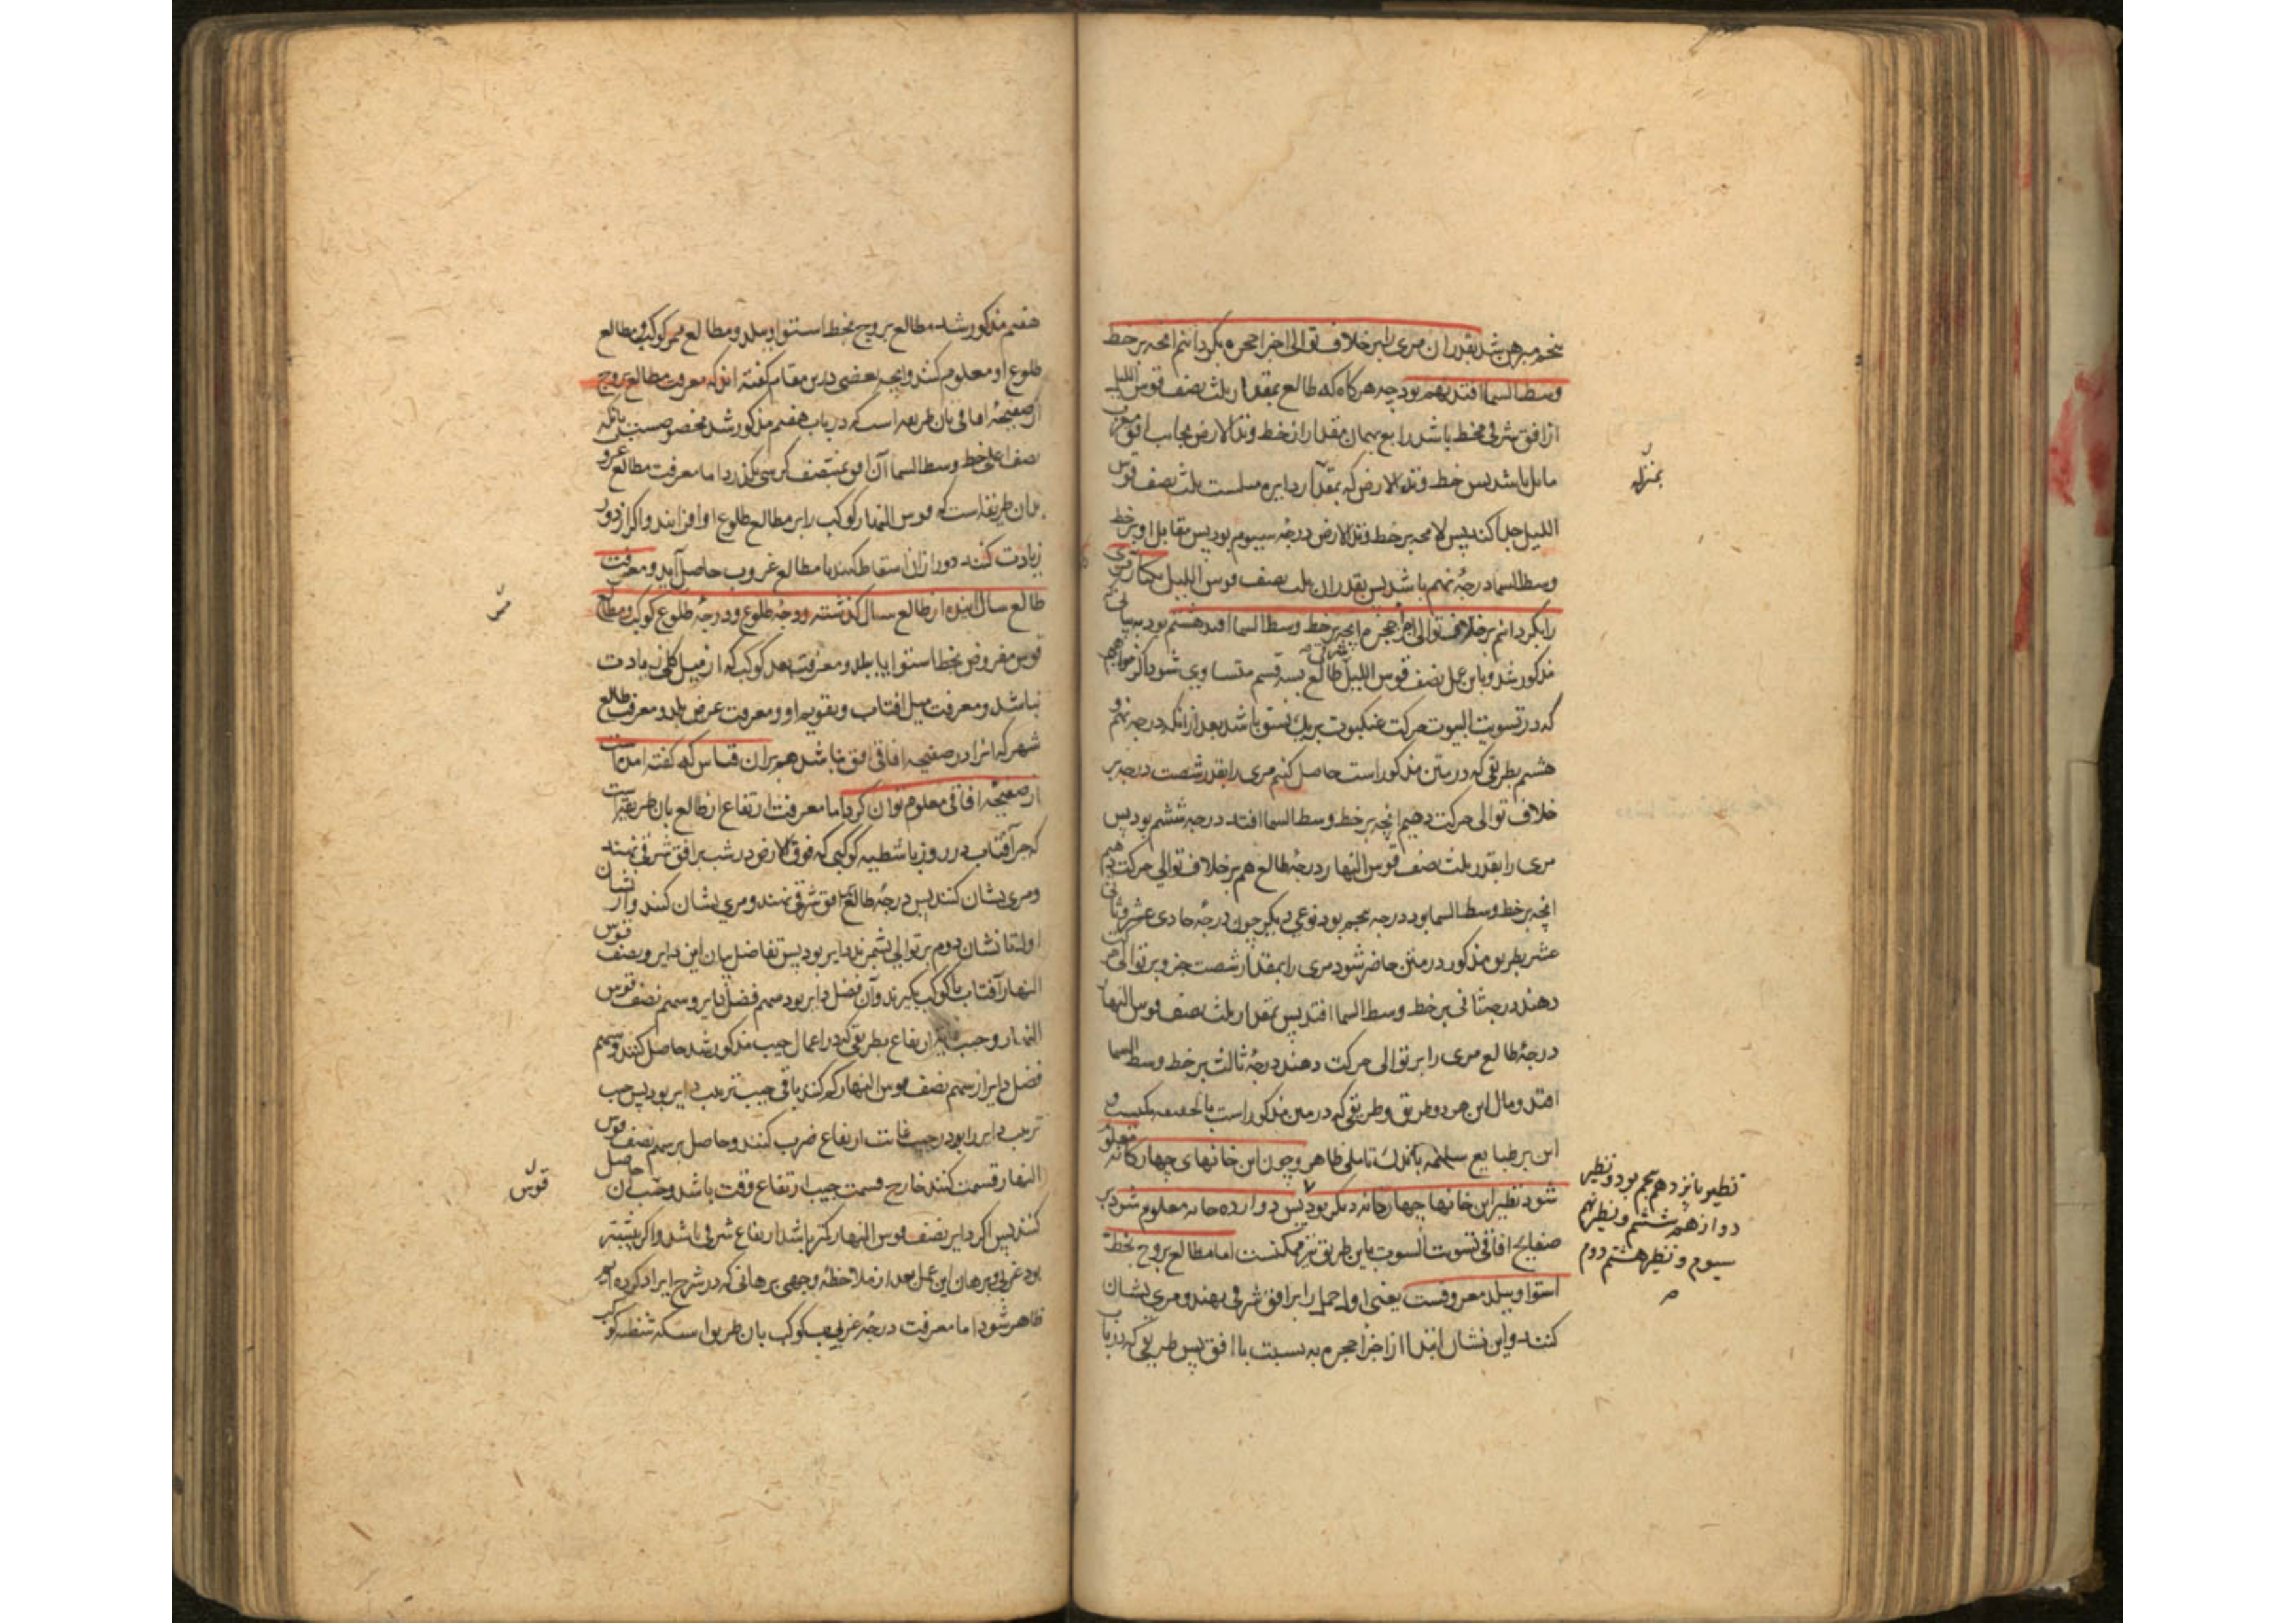 پنجم مبرهن شد بقدر آن مری را بر خلاف توالی اجزا حجره بگردانیم آنچه بر خط
وسط السما افتد نهم بود چه هرگاه که طالع بمقدار ثلث نصف قوس اللیل
از افق شرقی منحط باشد رابع بهمان مقدار از خط وتد الارض بجانب افق مغرب
مایل باشد پس خط وتد الارض که بمقدار دایره ثلث نصف قوس
اللیل جدا کند پس لامحه بر خط وتد الارض درجهٔ سیوم بود پس مقابل او بر خط
وسط السما درجهٔ نهم باشد پس بقدر آن ثلث نصف قوس اللیل یکبار دیگر مری
را بگردانیم بر خلاف توالی اجزا حجره آنچه بر خط وسط السما افتد هشتم بود
مذکور شد و باین عمل نصف قوس اللیل طالع بسه قسم متساوی شود و اگر خواهیم
که در تسویت البیوت حرکت عنکبوت بر یک نسق باشد بعد از آنکه درجه نهم و
هشتم بطریقی که در متن مذکور است حاصل کنیم مری را بقدر شصت درجه بر
خلاف توالی حرکت دهیم آنچه بر خط وسط السما افتد درجه ششم بود پس
مری را بقدر ثلث نصف قوس النهار درجهٔ طالع هم بر خلاف توالی حرکت دهیم
آنچه بر خط وسط السما بود درجه پنجم بود نوعی دیگر چون درجهٔ حادی عشر و ثانی
عشر بطریق مذکور در متن حاضر شود مری را بمقدار شصت جزو بر توالی حرکت
دهند درجهٔ ثانی بر خط وسط السما افتد پس بمقدار ثلث نصف قوس النهار
درجهٔ طالع مری را بر توالی حرکت دهند درجهٔ ثالث بر خط وسط السما
افتد و مآل این هر دو طریق و طریقی که در متن مذکور است بالحقیقه یکیست و
این بر طبایع سلیمه باندک تاملی ظاهر و چون این خانهای چهارگانه معلوم
شود نظیر این خانها چهار خانه دیگر بود پس دوازده خانه معلوم شود بر
صفایح آفاقی تسویت البیوت باین طریق نیز ممکنست اما مطالع بروج بخط
استوا و ببلد معروفست یعنی اول حمل را بر افق شرقی نهند و مری نشان
کنند و این نشان ابتدا از اجزا حجره به نسبت با افق پس طریقی که در باب
بمنزله
نظیر یازدهم پنجم بود و نظیر
دوازدهم ششم و نظیر نهم
سیوم و نظیر هشتم دوم
هفتم مذکور شد مطالع بروج بخط استوا و ببلد و مطالع ممر کوکب و مطالع
طلوع او معلوم کنند و آنچه بعضی درین مقام گفته اند که معرفت مطالع بروج
از صفیحهٔ آفاقی بآن طریقه است که در باب هفتم مذکور شد مخصوصست بآنکه
نصف اعلی خط وسط السما آن افق بمنتصف کرسی بگذرد اما معرفت مطالع غروب
بدان طریقه است که قوس النهار کوکب را بر مطالع طلوع او افزایند و اگر از دور
زیادت کنند دور از آن اسقاط کنند تا مطالع غروب حاصل آید و معرفت
طالع سال آینده از طالع سال گذشته و درجهٔ طلوع و درجهٔ طلوع کوکب و مطالع
قوس مفروض بخط استوا یا ببلد و معرفت بعد کوکب که از میل کلی زیادت
نباشد و معرفت میل آفتاب و تقویم او و معرفت عرض بلد و معرفت طالع
شهر که آنرا در صفیحه آفاقی افق نباشد هم بر آن قیاس که گفته آمد
از صفیحهٔ آفاقی معلوم توان کرد اما معرفت ارتفاع از طالع بآن طریقه است
که جزو آفتاب در روز یا شظیه کوکبی که فوق الارض در شب بر افق شرقی نهند
و مری نشان کنند پس درجهٔ طالع بر افق شرقی نهند و مری نشان کنند و از نشان
اول تا نشان دوم بر توالی بشمرند دایر بود پس تفاضل میان این دایر و نصف قوس
النهار آفتاب یا کوکب بگیرند و آن فضل دایر بود سهم فضل دایر و سهم نصف قوس
النهار و جیب غایت ارتفاع بطریقی که در اعمال جیب مذکور شد حاصل کنند و سهم
فضل دایر از سهم نصف قوس النهار کم کنند باقی جیب ترتیب دایر بود پس جیب
ترتیب دایر را بود در جیب غایت ارتفاع ضرب کنند و حاصل بر سهم نصف قوس
النهار قسمت کنند خارج قسمت جیب ارتفاع وقت باشد و جیب آن حاصل
کنند پس اگر دایر نصف قوس النهار کمتر باشد ارتفاع شرقی باشد و اگر بیشتر
بود غربی و برهان این عمل بعد از ملاحظهٔ وجهی برهانی که در شرح ایراد کرده ایم
ظاهر شود اما معرفت درجهٔ غروب کوکب بآن طریق است که شظیه کوکب
قوس